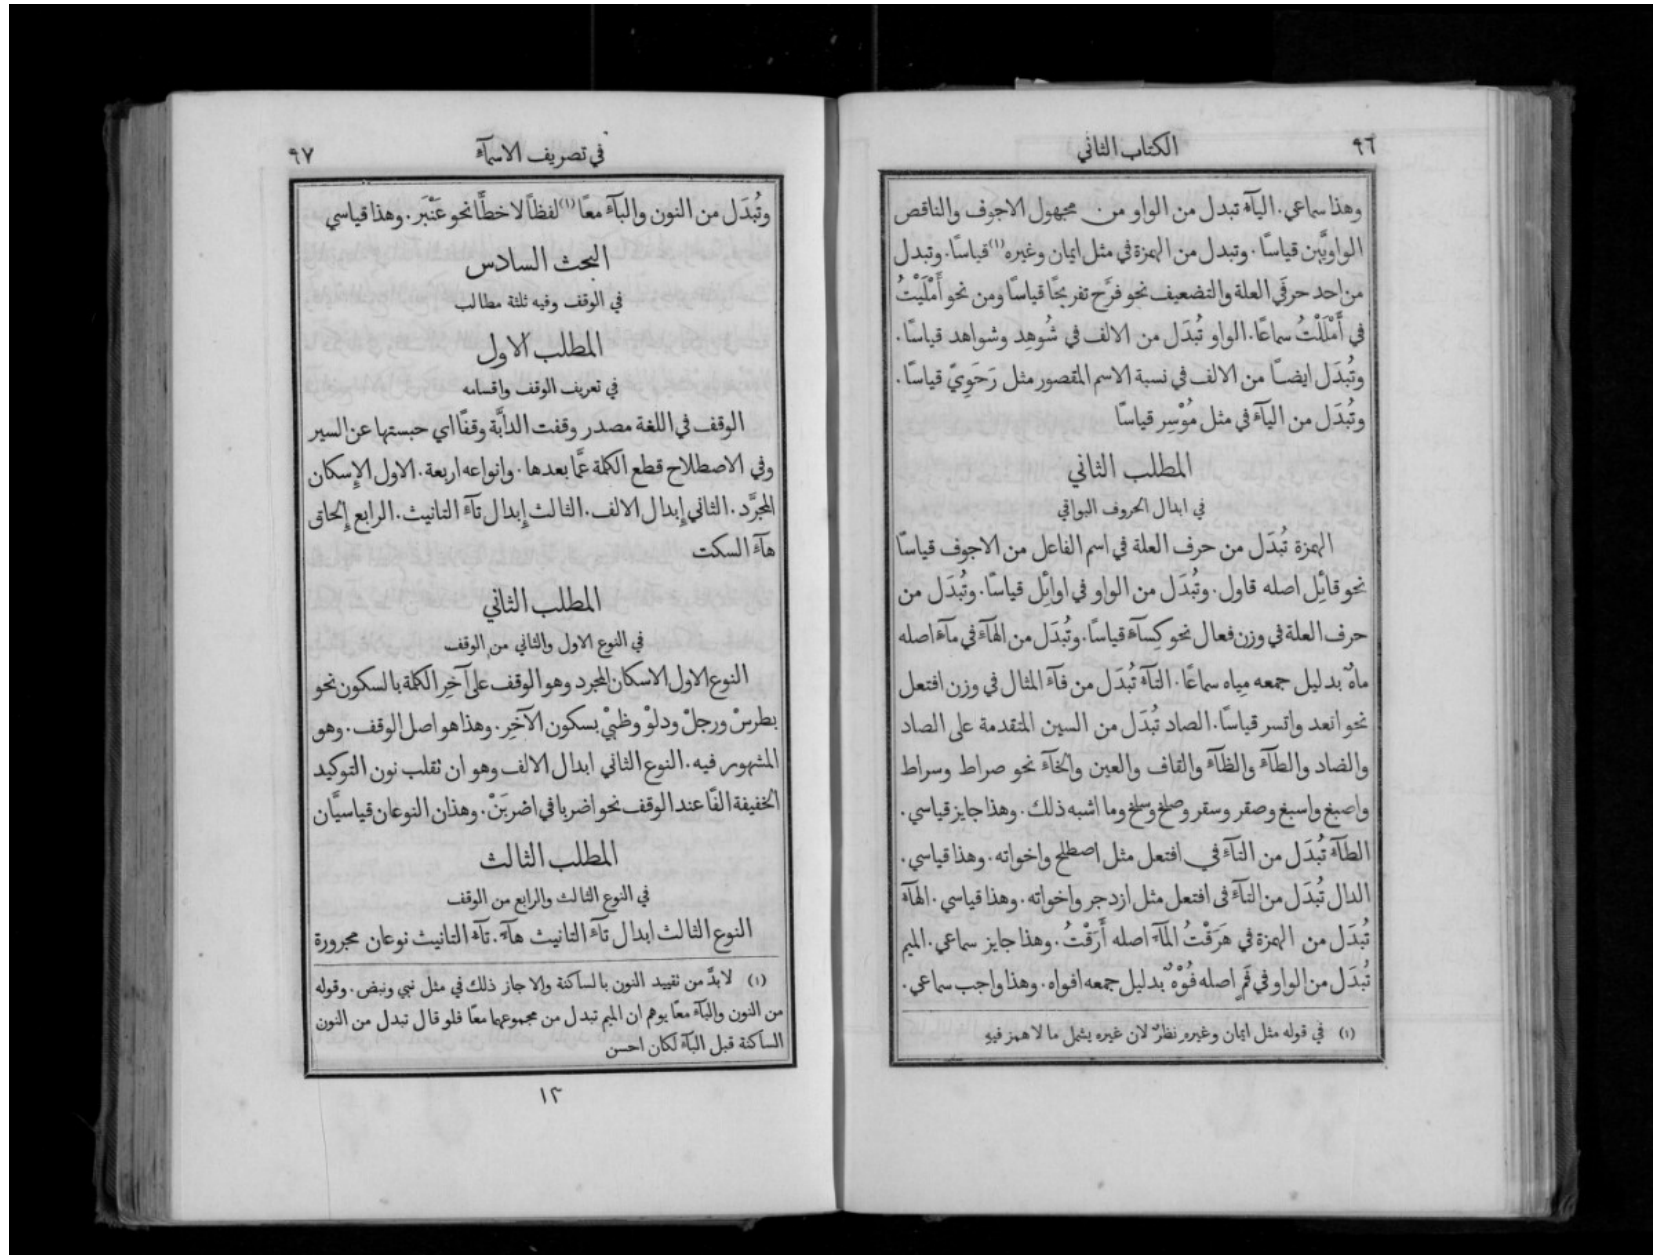 ٩٦
الكتاب الثاني
وهذا سماعي. اليآء تبدل من الواو من مجهول الاجوف والناقص
الواويَّين قياسًا. وتبدل من الهمزة في مثل ايمان وغيره (١) قياسًا. وتبدل
من احد حرفَي العلة والتضعيف نحو فرَّح تفريحًا قياسًا ومن نحو أَمْلَيْتُ
في أَمْلَلْتُ سماعًا. الواو تُبدَل من الالف في شُوهِد وشواهد قياسًا.
وتُبدَل ايضًا من الالف في نسبة الاسم المقصور مثل رَحَوِيّ قياسًا.
وتُبدَل من اليآء في مثل مُوْسِر قياسًا
المطلب الثاني
في ابدال الحروف البواقي
الهمزة تُبدَل من حرف العلة في اسم الفاعل من الاجوف قياسًا
نحو قائِل اصله قاول. وتُبدَل من الواو في اوائِل قياسًا. وتُبدَل من
حرف العلة في وزن فعال نحو كِسآء قياسًا. وتُبدَل من الهآء في مآء اصله
ماهٌ بدليل جمعه مياه سماعًا. التآء تُبدَل من فآء المثال في وزن افتعل
نحو اتعد واتسر قياسًا. الصاد تُبدَل من السين المتقدمة على الصاد
والضاد والطآء والظآء والقاف والعين والخآء نحو صراط وسراط
واصبغ واسبغ وصقر وسقر وصلخ وسلخ وما اشبه ذلك. وهذا جايز قياسي.
الطآء تُبدَل من التآء في افتعل مثل اصطلح واخواته. وهذا قياسي.
الدال تُبدَل من التآء في افتعل مثل ازدجر واخواته. وهذا قياسي. الهآء
تُبدَل من الهمزة في هَرَقْتُ المآء اصله أَرَقْتُ. وهذا جايز سماعي. الميم
تُبدَل من الواو في فَمٍ اصله فُوْهٌ بدليل جمعه افواه. وهذا واجب سماعي.
(١) في قوله مثل ايمان وغيره نظرٌ لان غيره يشمل ما لا همز فيه
في تصريف الاسمآء
٩٧
وتُبدَل من النون والبآء معًا (١) لفظًا لا خطًّا نحو عَنْبَر. وهذا قياسي
البحث السادس
في الوقف وفيه ثلثة مطالب
المطلب الاول
في تعريف الوقف واقسامه
الوقف في اللغة مصدر وقفت الدابَّة وقفًا اي حبستها عن السير
وفي الاصطلاح قطع الكلمة عمَّا بعدها. وانواعه اربعة. الاول الإِسكان
المجرَّد. الثاني إِبدال الالف. الثالث إِبدال تآء التانيث. الرابع إِلحاق
هآء السكت
المطلب الثاني
في النوع الاول والثاني من الوقف
النوع الاول الاسكان المجرد وهو الوقف على آخِر الكلمة بالسكون نحو
بطرسْ ورجلْ ودلوْ وظبيْ بسكون الآخِر. وهذا هو اصل الوقف. وهو
المشهور فيه. النوع الثاني ابدال الالف وهو ان تقلب نون التوكيد
الخفيفة الفًا عند الوقف نحو اضربا في اضربَنْ. وهذان النوعان قياسيَّان
المطلب الثالث
في النوع الثالث والرابع من الوقف
النوع الثالث ابدال تآء التانيث هآء. تآء التانيث نوعان مجرورة
(١) لابدَّ من تقييد النون بالساكنة والا جاز ذلك في مثل نبي ونبض. وقوله
من النون والبآء معًا يوهم ان الميم تبدل من مجموعهما معًا فلو قال تبدل من النون
الساكنة قبل البآء لكان احسن
١٣